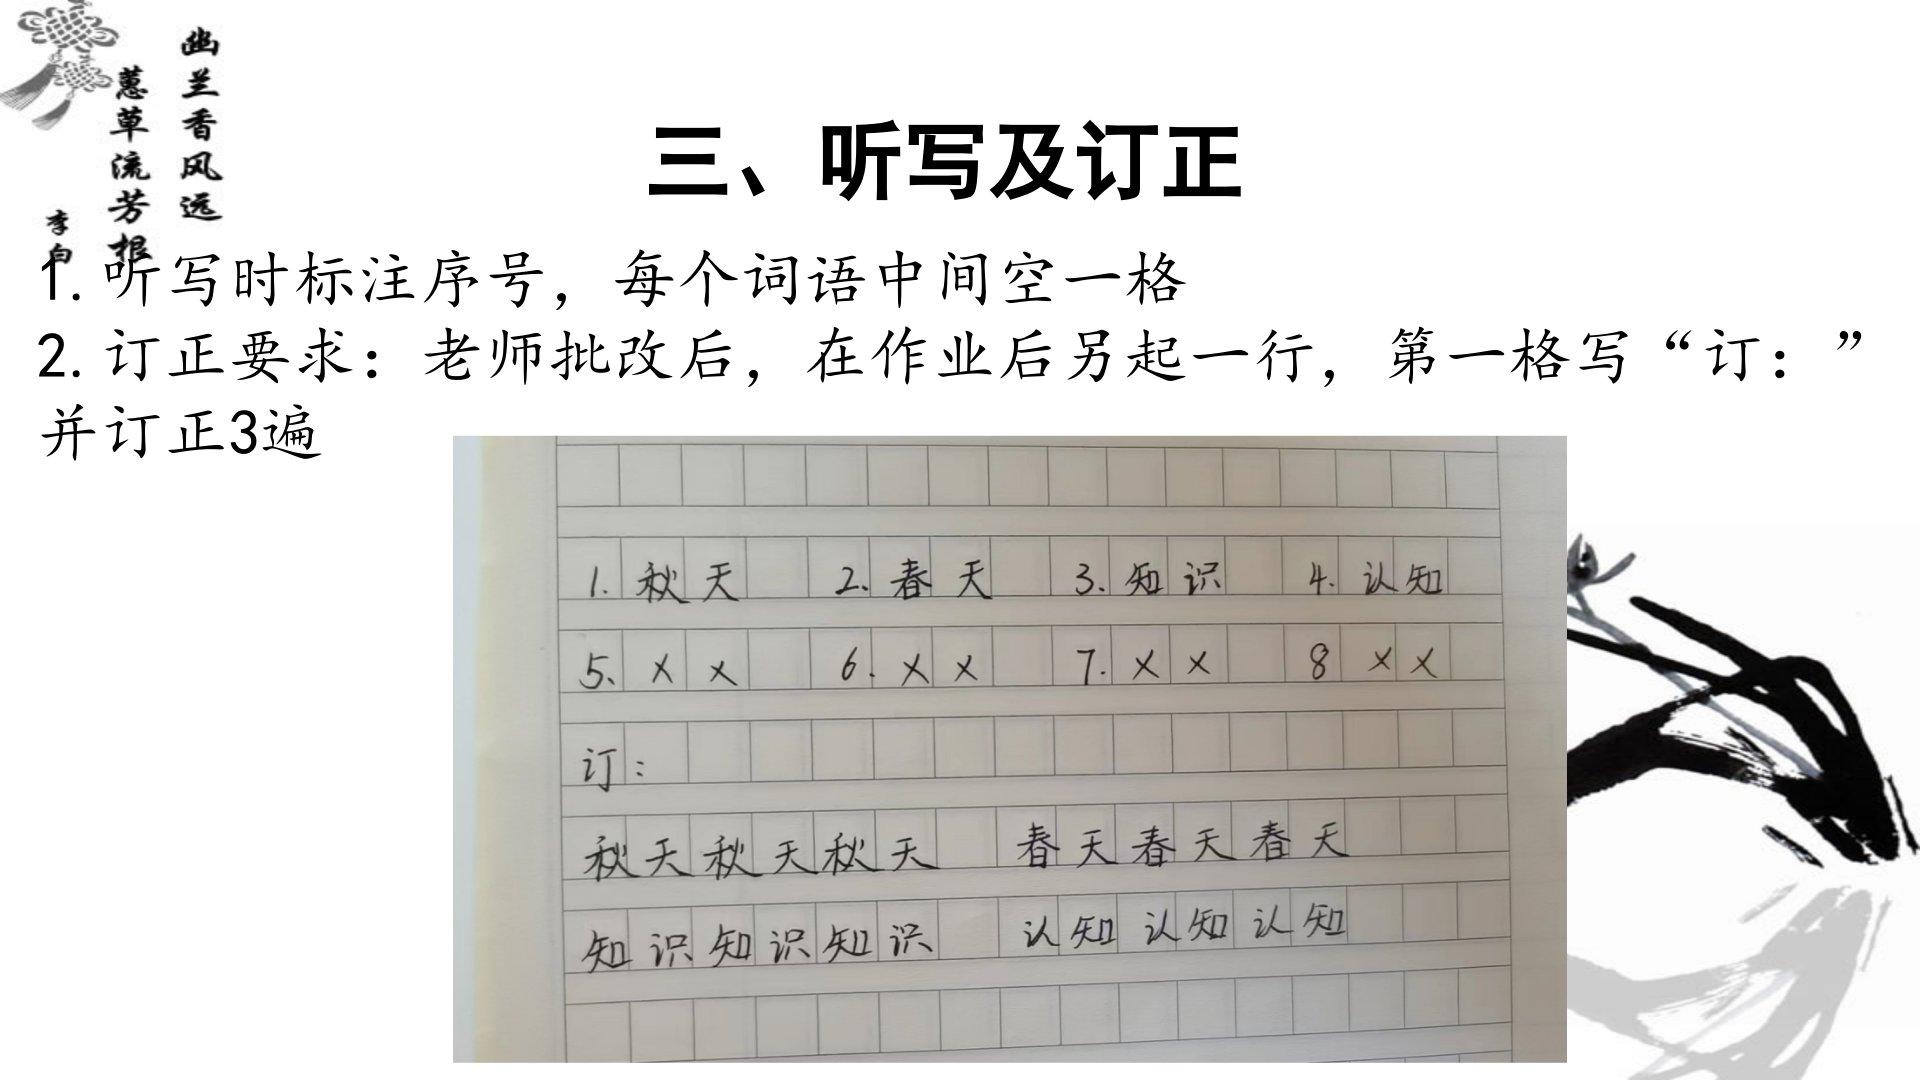 幽兰香风远
蕙草流芳根
李白
三、听写及订正
1. 听写时标注序号，每个词语中间空一格
2. 订正要求：老师批改后，在作业后另起一行，第一格写“订：”
并订正3遍
1. 秋天 2. 春天 3. 知识 4. 认知
5、×× 6. ×× 7. ×× 8 ××
订：
秋天秋天秋天 春天春天春天
知识知识知识 认知认知认知